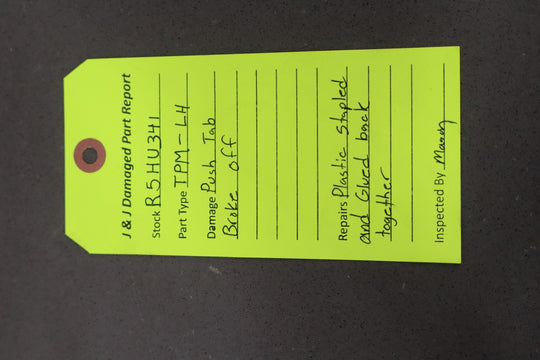 J & J Damaged Part Report
Stock R5HU341
Part Type TPM-LH
Damage Push Tab
Broke off
Repairs Plastic Stapled
and Glued back
together
Inspected By